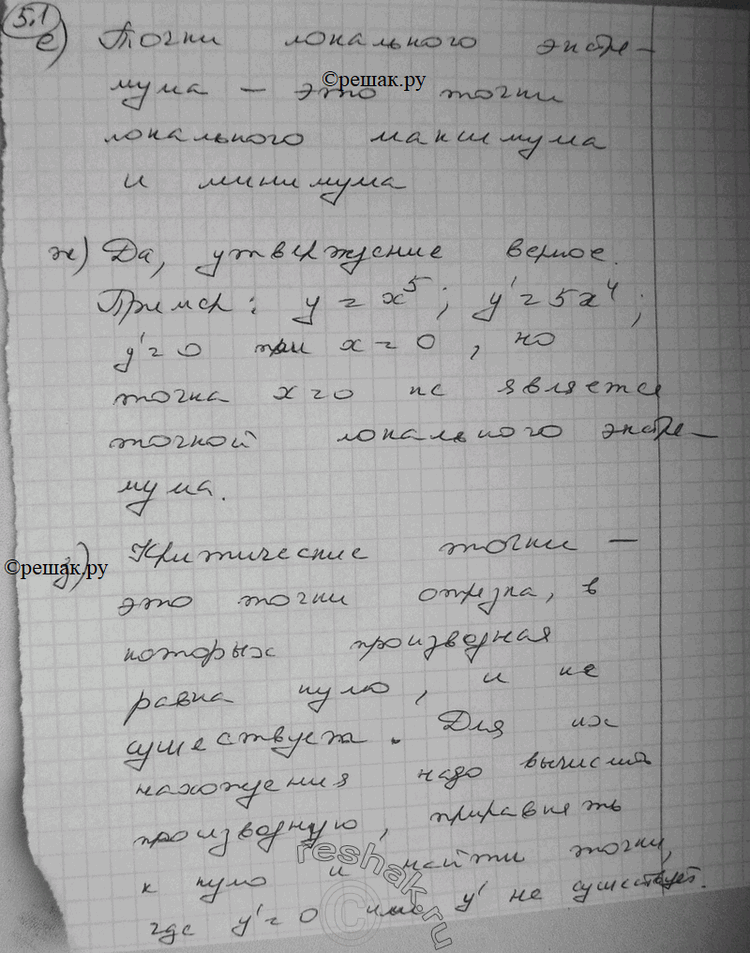 5.1
е) Точки локального экстре-
©решак.ру
мума — это точки
локального максимума
и минимума
ж) Да, утверждение верное.
Пример: y = x⁵; y' = 5x⁴;
y' = 0 при x = 0, но
точка x = 0 не является
точкой локального экстре-
мума.
з) Критические точки —
©решак.ру
это точки отрезка, в
которых производная
равна нулю, и не
существует. Для их
нахождения надо вычислить
производную, приравнять
к нулю и найти точки,
где y' = 0 или y' не существует.
reshak.ru